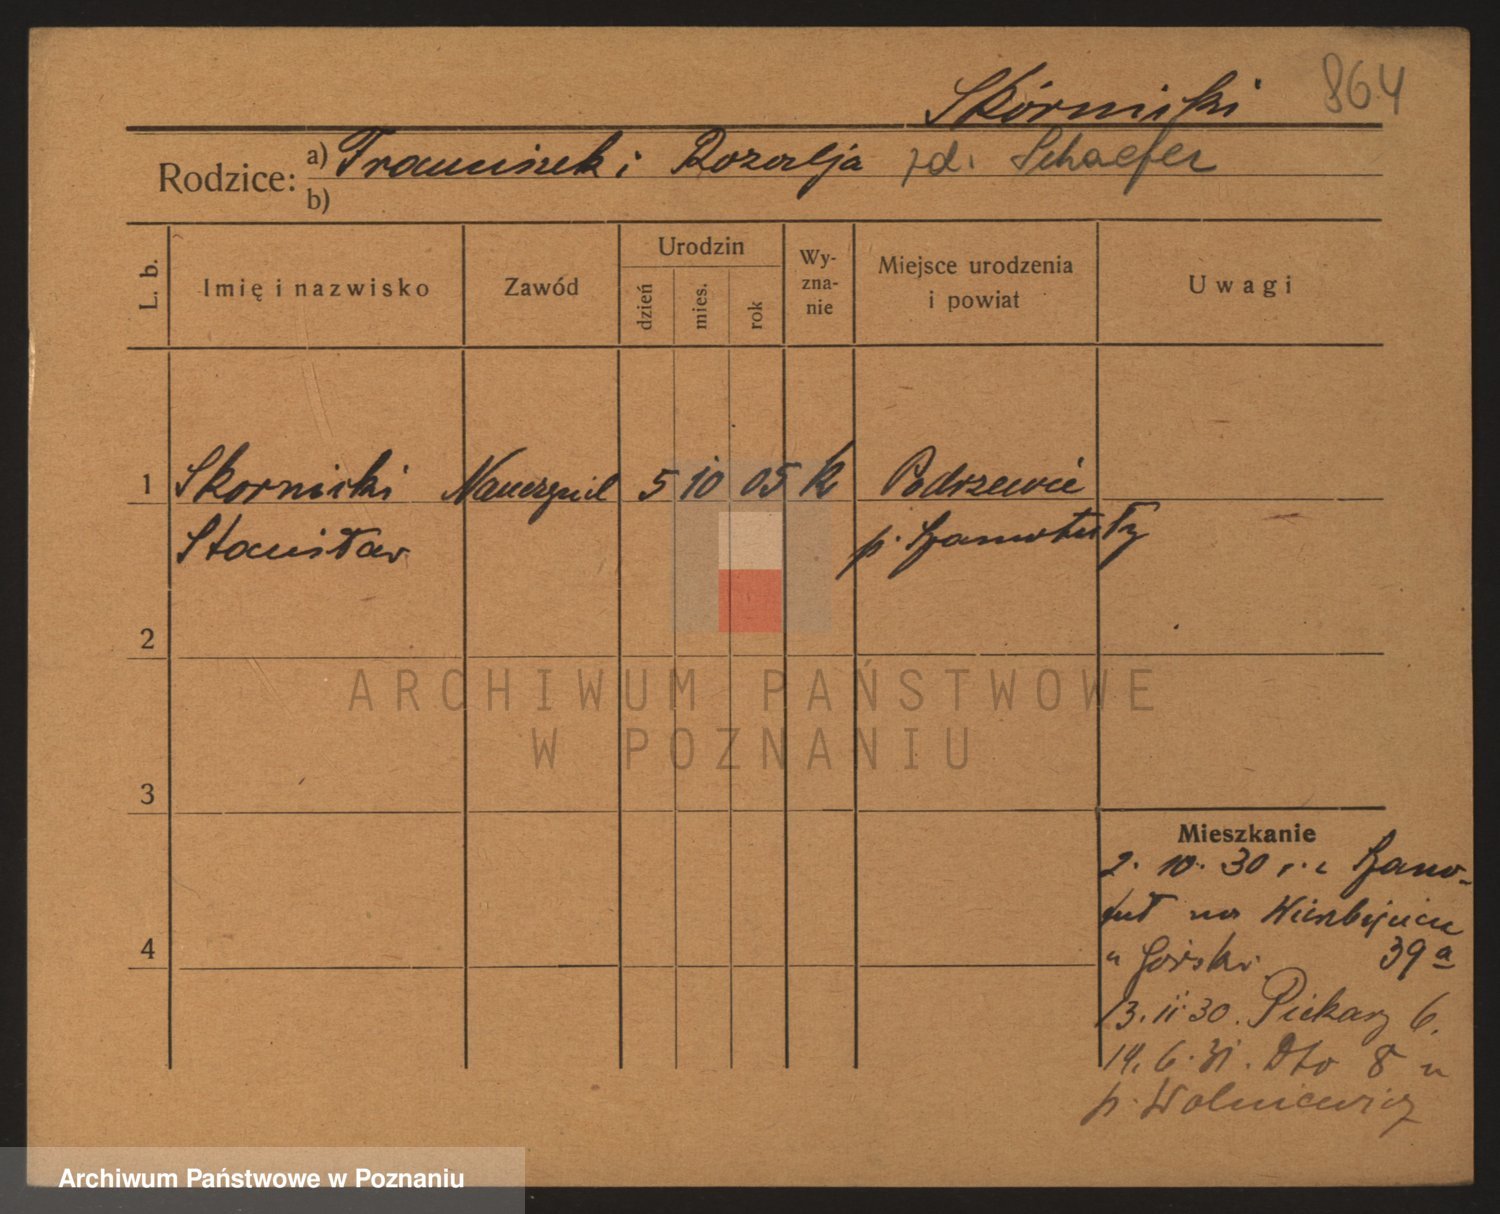 Skórnicki 864
Rodzice: a) Franciszek i Rozalja zd. Schaefer
b)
L. b. Imię i nazwisko Zawód Urodzin dzień mies. rok Wyznanie Miejsce urodzenia i powiat Uwagi
1 Skornicki Nauczyciel 5 10 05 k Podrzewie
Stanisław p. Szamotuły
2
ARCHIWUM PAŃSTWOWE
W POZNANIU
3
Mieszkanie
2. 10. 30 r. z Szamo-
tuł na Wierzbięcice
4
u Górski 39a
13. 11. 30. Piekary 6.
14. 6. 31. Dto 8 u
p. Wolniewicz
Archiwum Państwowe w Poznaniu